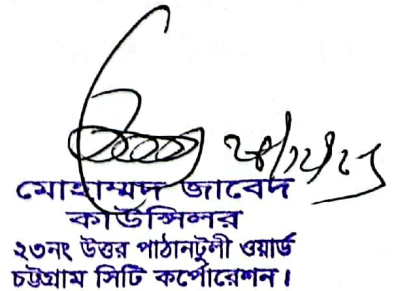 মোহাম্মদ জাবেদ
কাউন্সিলর
২৩নং উত্তর পাঠানটুলী ওয়ার্ড
চট্টগ্রাম সিটি কর্পোরেশন।